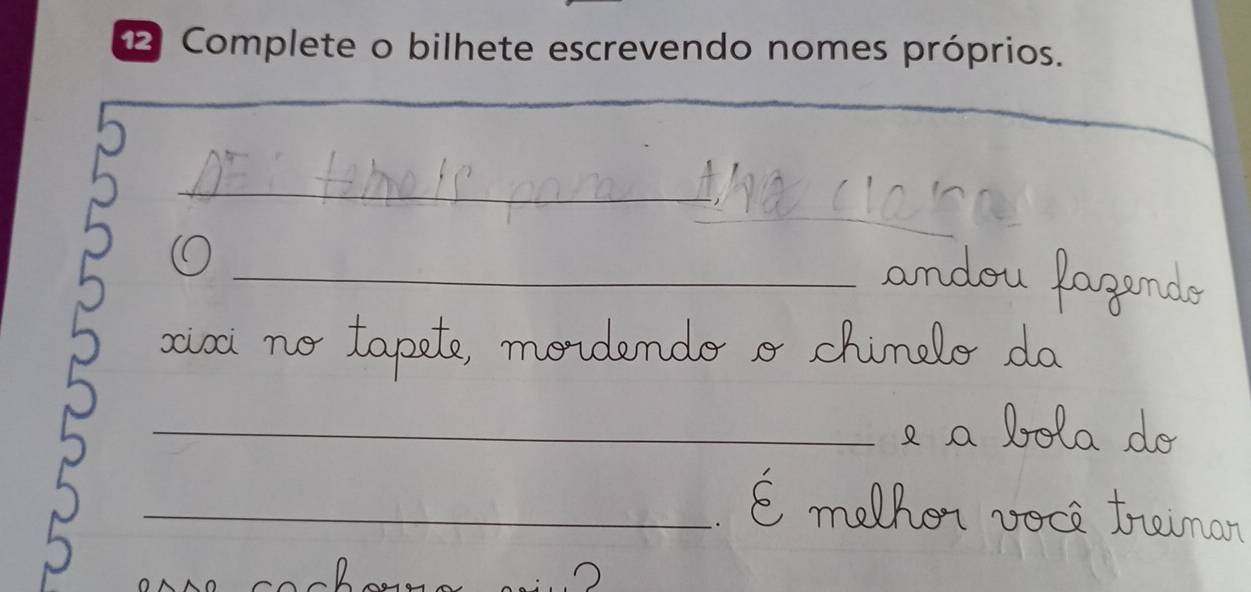 12 Complete o bilhete escrevendo nomes próprios.
para clara
O andou fazendo
xixi no tapete, mordendo o chinelo da
e a bola do
. É melhor você treinar
esse cachorro, viu?